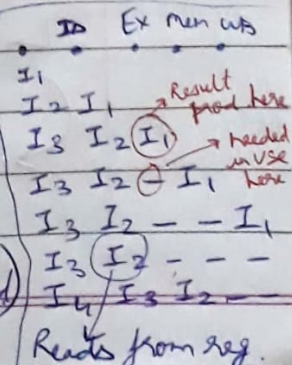 ID Ex Mem WB
I1
I2 I1 Result prod. here
I3 I2 I1 needed in use here
I3 I2 - I1
I3 I2 - - I1
I3 I2 - - -
I4 I3 I2 - -
Reads from reg.